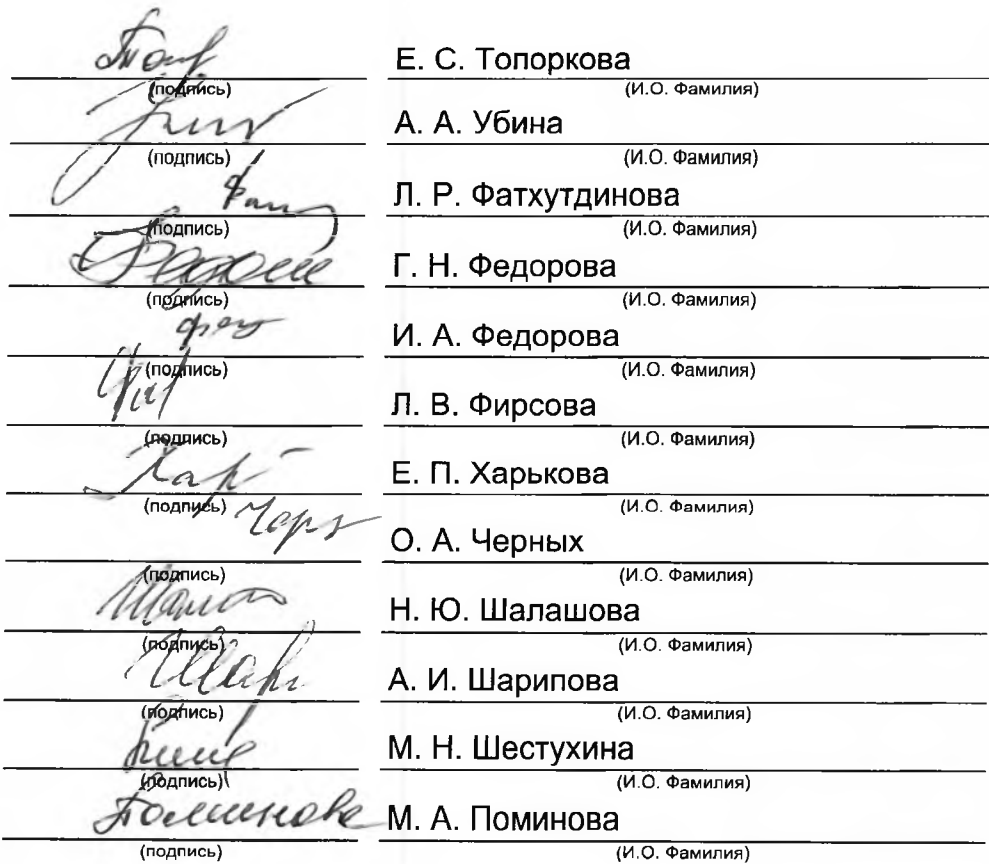 Е. С. Топоркова
(подпись) (И.О. Фамилия)
А. А. Убина
(подпись) (И.О. Фамилия)
Л. Р. Фатхутдинова
(подпись) (И.О. Фамилия)
Г. Н. Федорова
(подпись) (И.О. Фамилия)
И. А. Федорова
(подпись) (И.О. Фамилия)
Л. В. Фирсова
(подпись) (И.О. Фамилия)
Е. П. Харькова
(подпись) (И.О. Фамилия)
О. А. Черных
(подпись) (И.О. Фамилия)
Н. Ю. Шалашова
(подпись) (И.О. Фамилия)
А. И. Шарипова
(подпись) (И.О. Фамилия)
М. Н. Шестухина
(подпись) (И.О. Фамилия)
Поминова М. А. Поминова
(подпись) (И.О. Фамилия)